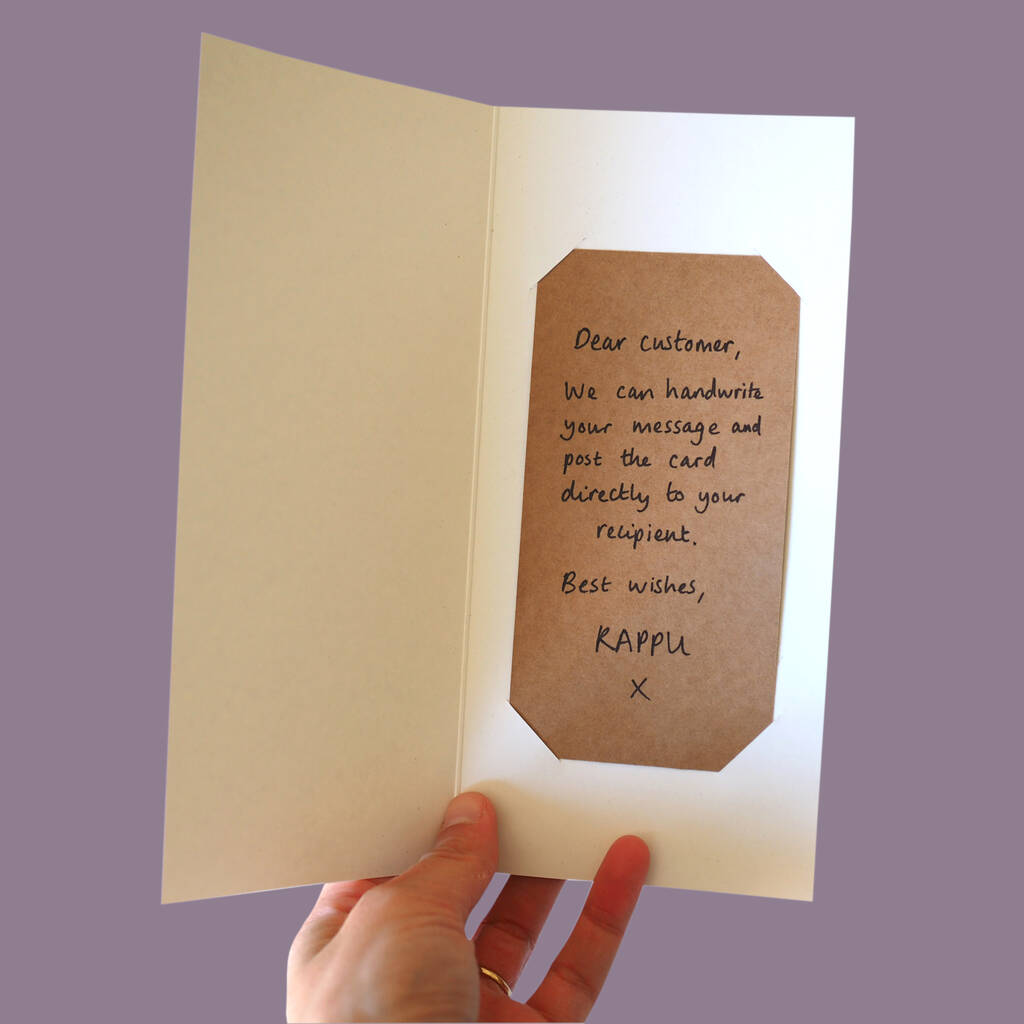 Dear customer,
We can handwrite
your message and
post the card
directly to your
recipient.
Best wishes,
RAPPU
X